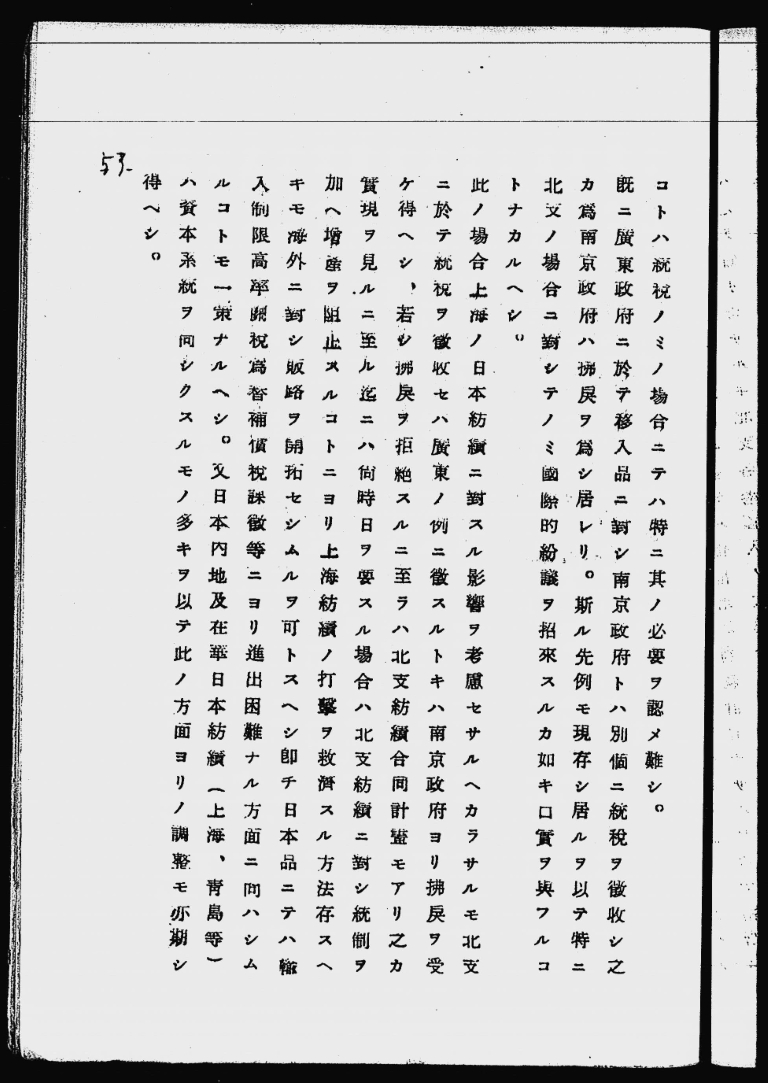 コトハ統税ノミノ場合ニテハ特ニ其ノ必要ヲ認メ難シ。
既ニ廣東政府ニ於テ移入品ニ對シ南京政府トハ別個ニ統税ヲ徴收シ之
カ爲南京政府ハ拂戻ヲ爲シ居レリ。斯ル先例モ現存シ居ルヲ以テ特ニ
北支ノ場合ニ對シテノミ國際的紛議ヲ招來スルカ如キ口實ヲ與フルコ
トナカルヘシ。
此ノ場合上海ノ日本紡績ニ對スル影響ヲ考慮セサルヘカラサルモ北支
ニ於テ統税ヲ徴收セハ廣東ノ例ニ徴スルトキハ南京政府ヨリ拂戻ヲ受
ケ得ヘシ、若シ拂戻ヲ拒絶スルニ至ラハ北支紡績合同計畫モアリ之カ
實現ヲ見ルニ至ル迄ニハ尚時日ヲ要スル場合ハ北支紡績ニ對シ統制ヲ
加ヘ增產ヲ阻止スルコトニヨリ上海紡績ノ打擊ヲ救濟スル方法存スヘ
キモ海外ニ對シ販路ヲ開拓セシムルヲ可トスヘシ卽チ日本品ニテハ輸
入制限高率關税爲替補償税課徴等ニヨリ進出困難ナル方面ニ向ハシム
ルコトモ一策ナルヘシ。又日本内地及在華日本紡績（上海、靑島等）
ハ資本系統ヲ同シクスルモノ多キヲ以テ此ノ方面ヨリノ調整モ亦期シ
得ヘシ。
53.